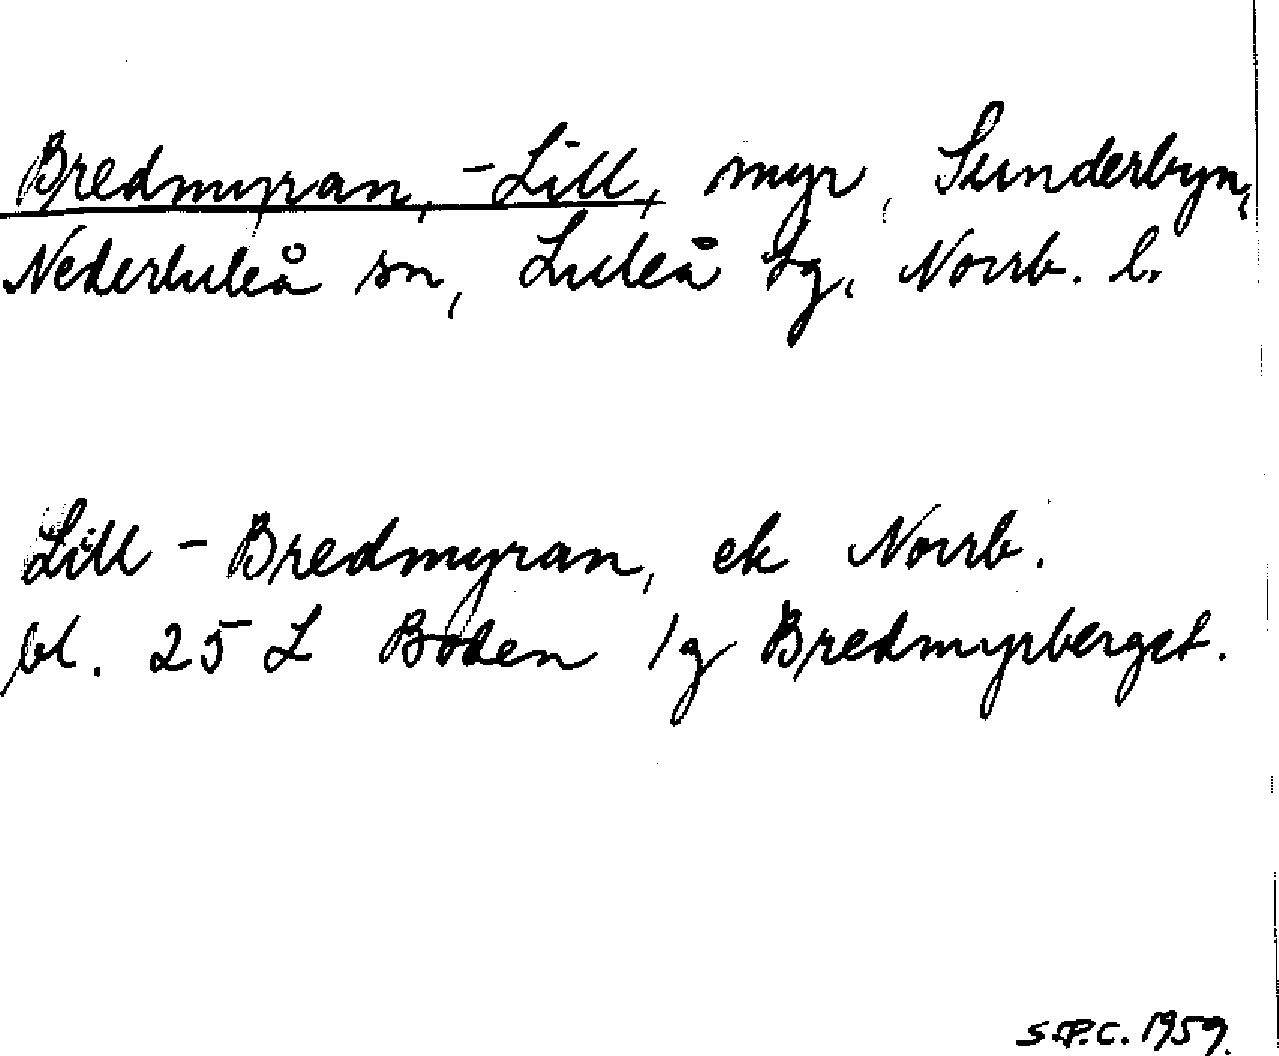 Bredmyran, -Lill, myr, Sunderbyn,
Nederluleå sn, Luleå tg, Norrb. l.
Lill-Bredmyran, ek Norrb.
bl. 25 L Boden 1g Bredmyrberget.
S.P.C. 1959.